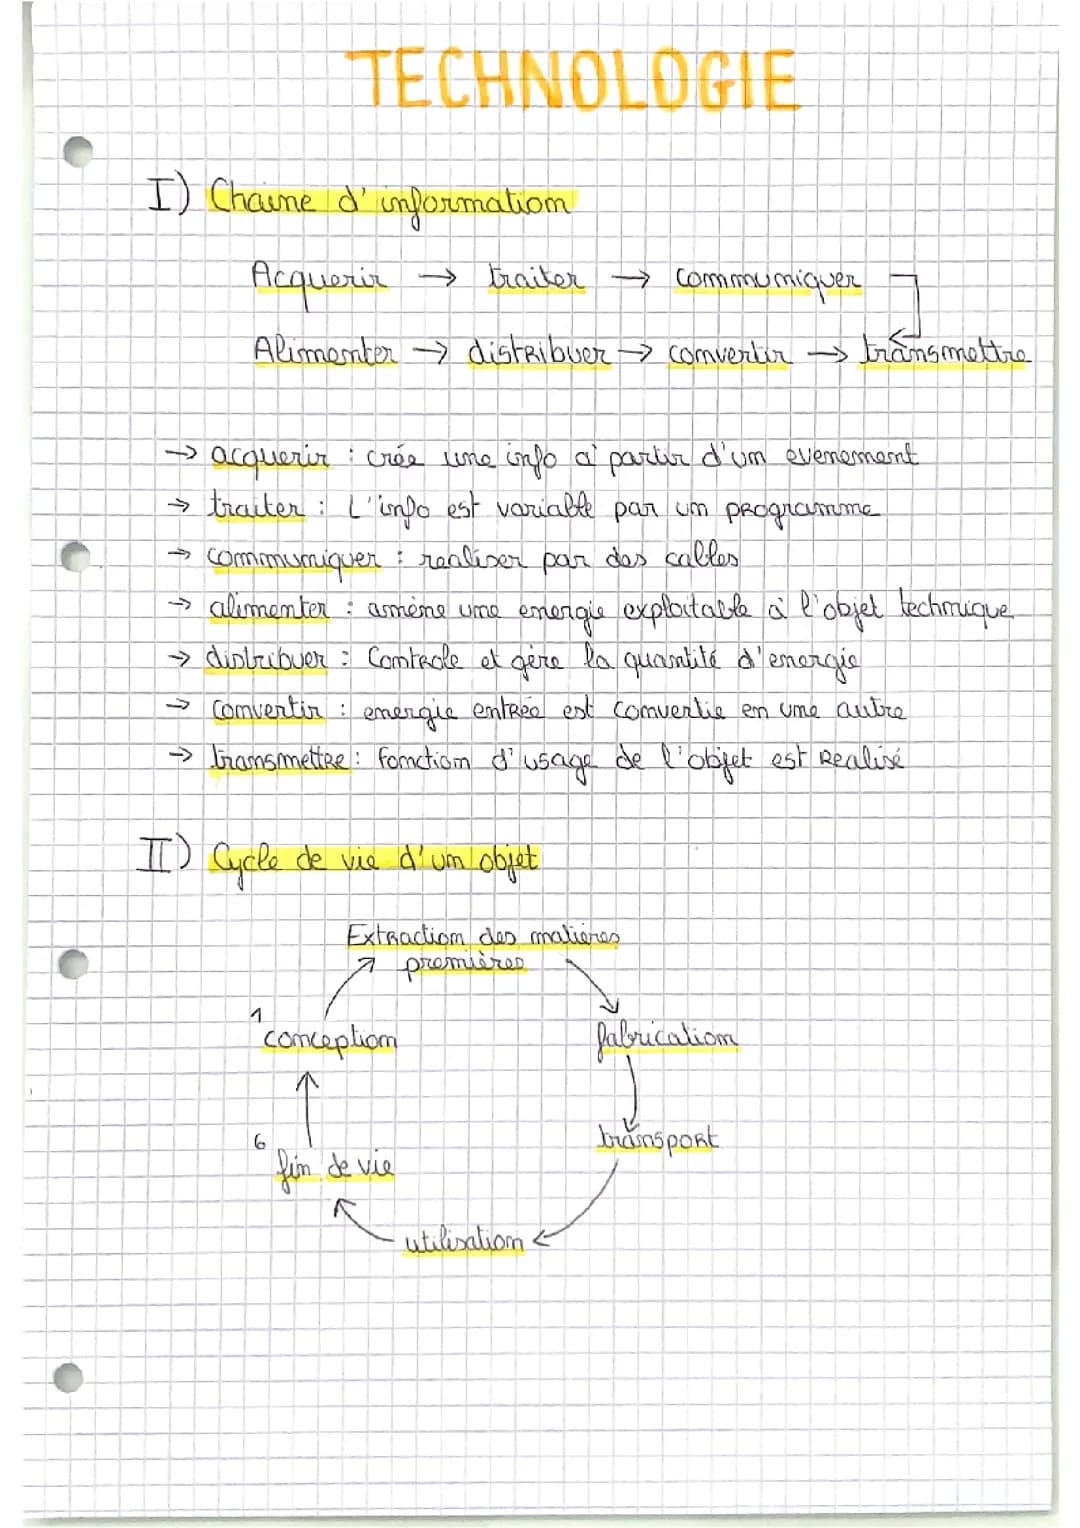 TECHNOLOGIE
I) Chaine d'information
Acquerir → traiter → communiquer
Alimenter → distribuer → convertir → transmettre
→ acquerir : crée une info a' partir d'un evenement
→ traiter : L'info est variable par un programme
→ communiquer : realiser par des cables
→ alimenter : amène une energie exploitable à l'objet technique
→ distribuer : Controle et gère la quantité d'energie
→ convertir : energie entrée est convertie en une autre
→ transmettre : fonction d'usage de l'objet est Realisé
II) Cycle de vie d'un objet
Extraction des matières
premières
1
conception
fabrication
6
transport
fin de vie
utilisation